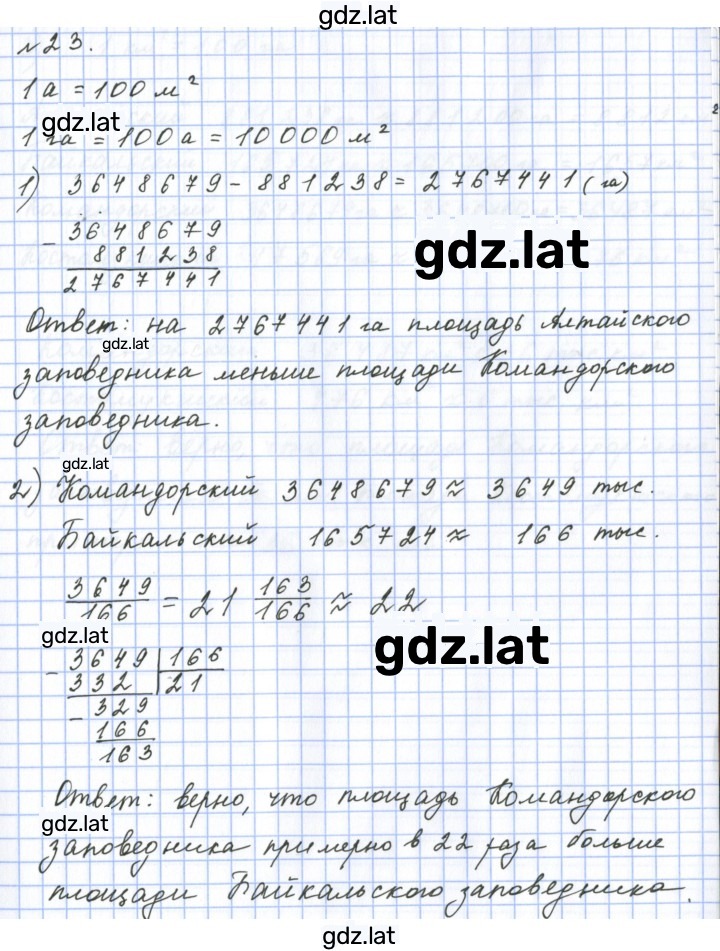 gdz.lat
№23.
1 а = 100 м²
gdz.lat
1 га = 100 а = 10 000 м²
1) 3648679 - 881238 = 2767441 (га)
- 3648679
gdz.lat
881238
2767441
Ответ: на 2767441 га площадь Алтайского
gdz.lat
заповедника меньше площади Командорского
заповедника.
gdz.lat
2) Командорский 3648679 ≈ 3649 тыс.
Байкальский 165724 ≈ 166 тыс.
3649/166 = 21 163/166 ≈ 22
gdz.lat
gdz.lat
- 3649 | 166
332 | 21
- 329
166
163
Ответ: верно, что площадь Командорского
gdz.lat
заповедника примерно в 22 раза больше
площади Байкальского заповедника.
gdz.lat